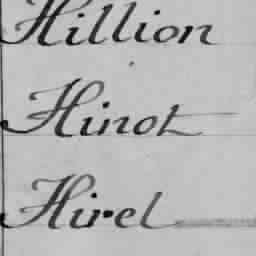 Hillion
Hinot
Hirel